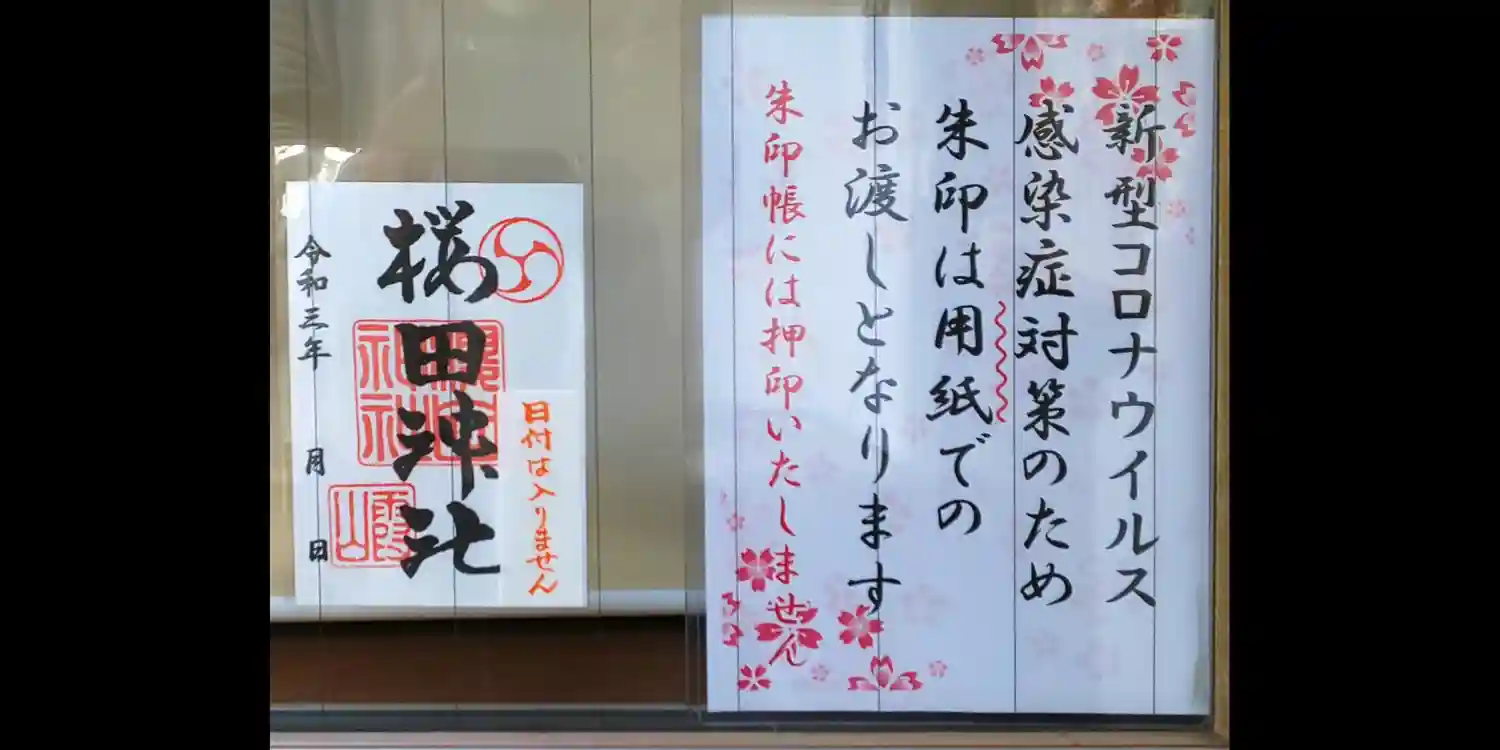 新型コロナウイルス
感染症対策のため
朱印は用紙での
お渡しとなります
朱印帳には押印いたしません
日付は入りません
桜田神社
令和三年 月 日